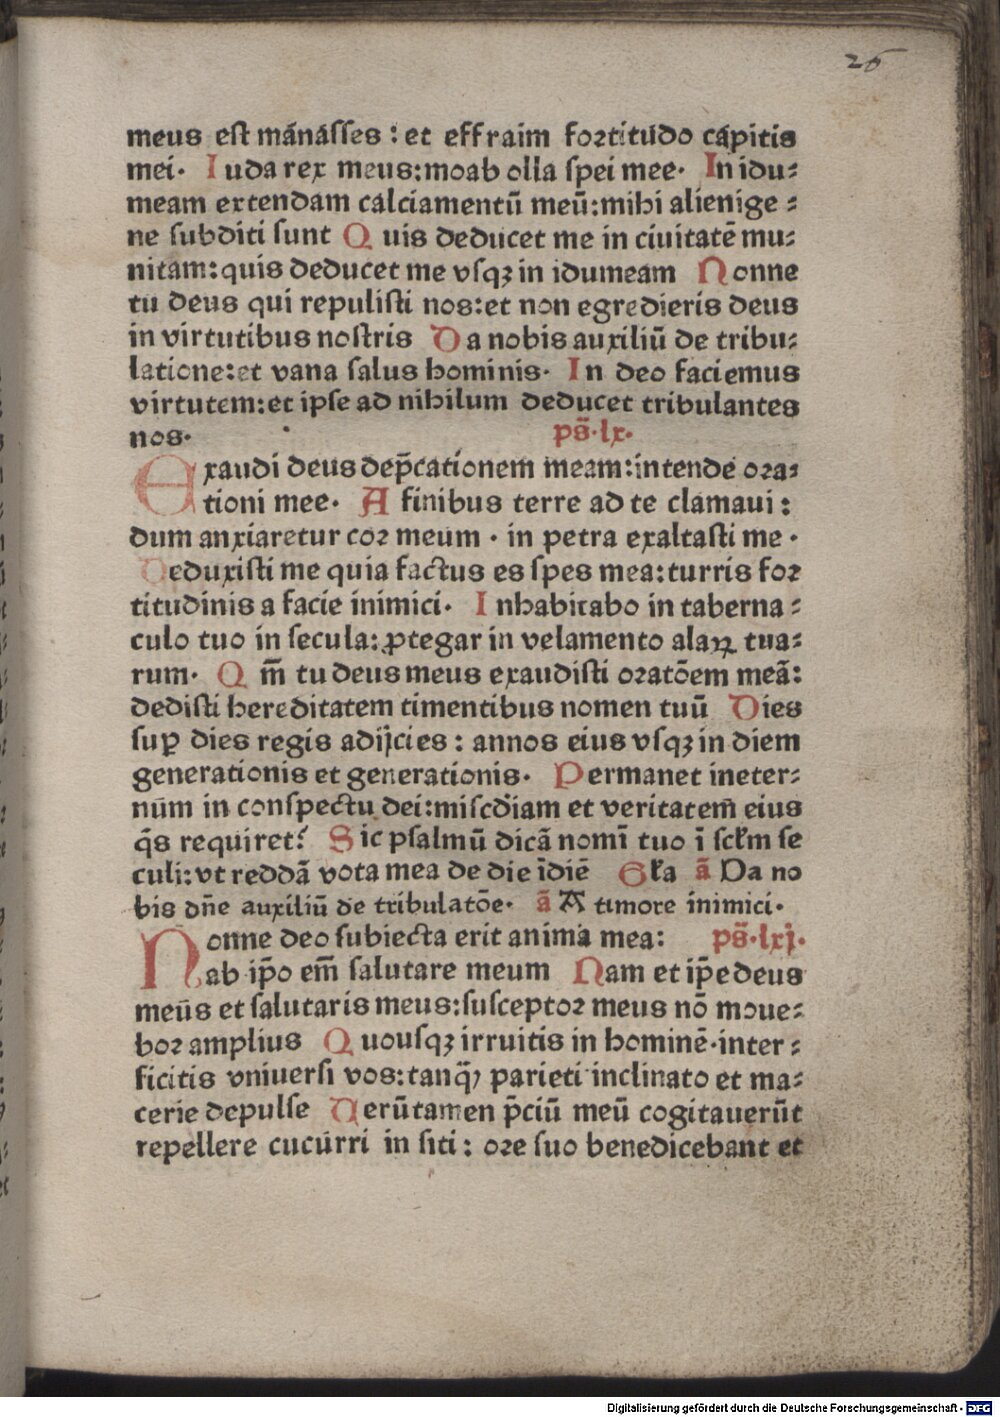 26
meus est manasses : et effraim fortitudo capitis
mei. Iuda rex meus:moab olla spei mee. In idu⸗
meam extendam calciamentū meū:mihi alienige⸗
ne subditi sunt Quis deducet me in ciuitatē mu⸗
nitam:quis deducet me vsqꝫ in idumeam Nonne
tu deus qui repulisti nos:et non egredieris deus
in virtutibus nostris Da nobis auxiliū de tribu⸗
latione:et vana salus hominis. In deo faciemus
virtutem:et ipse ad nihilum deducet tribulantes
nos. ps̄.lx.
Exaudi deus dep̄cationem meam:intende ora⸗
tioni mee. A finibus terre ad te clamaui :
dum anxiaretur cor meum . in petra exaltasti me .
Deduxisti me quia factus es spes mea:turris for
titudinis a facie inimici. Inhabitabo in taberna⸗
culo tuo in secula:ꝓtegar in velamento alaꝝ tua⸗
rum. Qm̄ tu deus meus exaudisti oratōem meā:
dedisti hereditatem timentibus nomen tuū Dies
suꝑ dies regis adijcies : annos eius vsqꝫ in diem
generationis et generationis. Permanet ineter⸗
num in conspectu dei:misc̄diam et veritatem̄ eius
q̄s requiret? Sic psalmū dicā nomī tuo ī scl̄m se
culi:vt reddā vota mea de die īdiē Gl̄a ā Da no
bis dn̄e auxiliū de tribulatōe. ā A timore inimici.
Nonne deo subiecta erit anima mea: ps̄.lxj.
ab ip̄o em̄ salutare meum Nam et ip̄e deus
meus et salutaris meus:susceptor meus nō moue⸗
bor amplius Quousqꝫ irruitis in hominē.inter⸗
ficitis vniuersi vos:tanq̄ꝫ parieti inclinato et ma⸗
cerie depulse Uerūtamen p̄ciū meū cogitauerūt
repellere cucurri in siti : ore suo benedicebant et
Digitalisierung gefördert durch die Deutsche Forschungsgemeinschaft - DFG